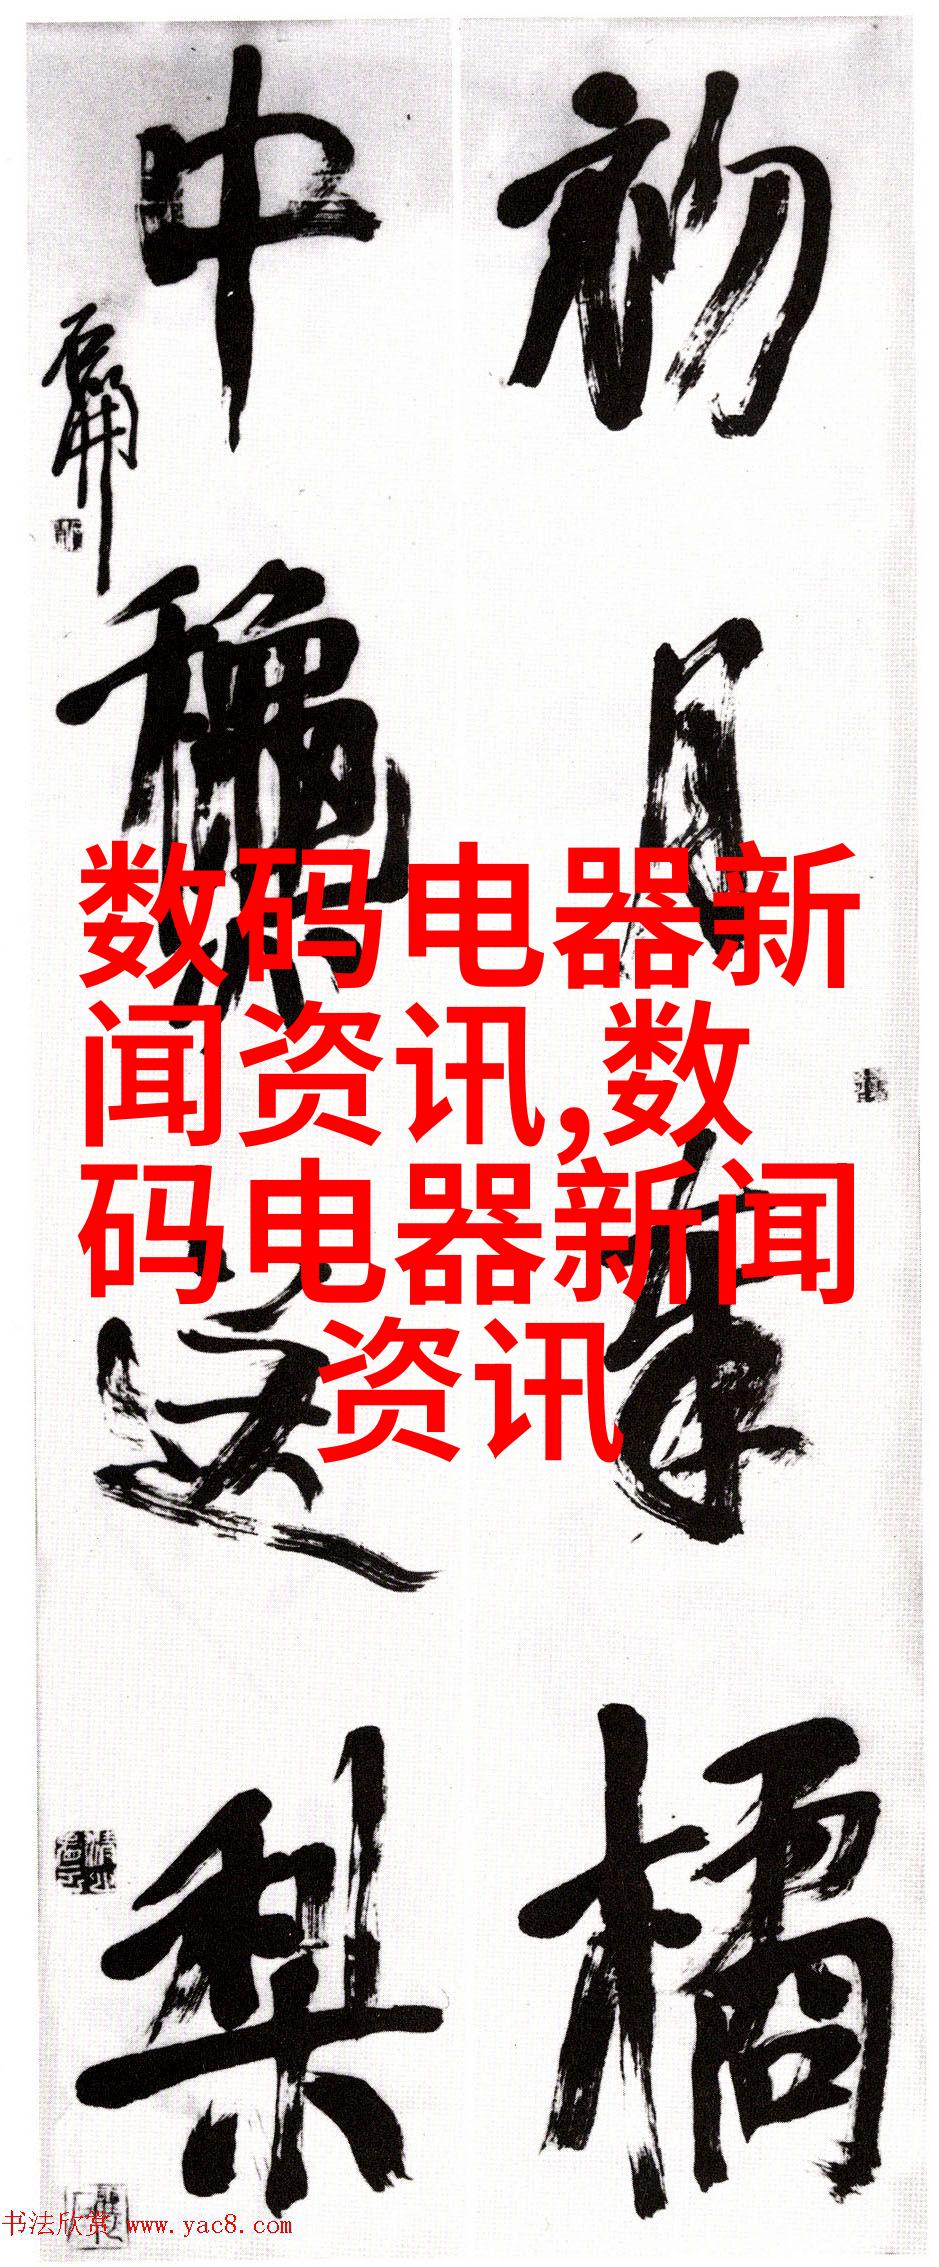 初月橘
中穐梨
数码电器新
闻资讯,数
码电器新闻
资讯
书法欣赏 www.yac8.com